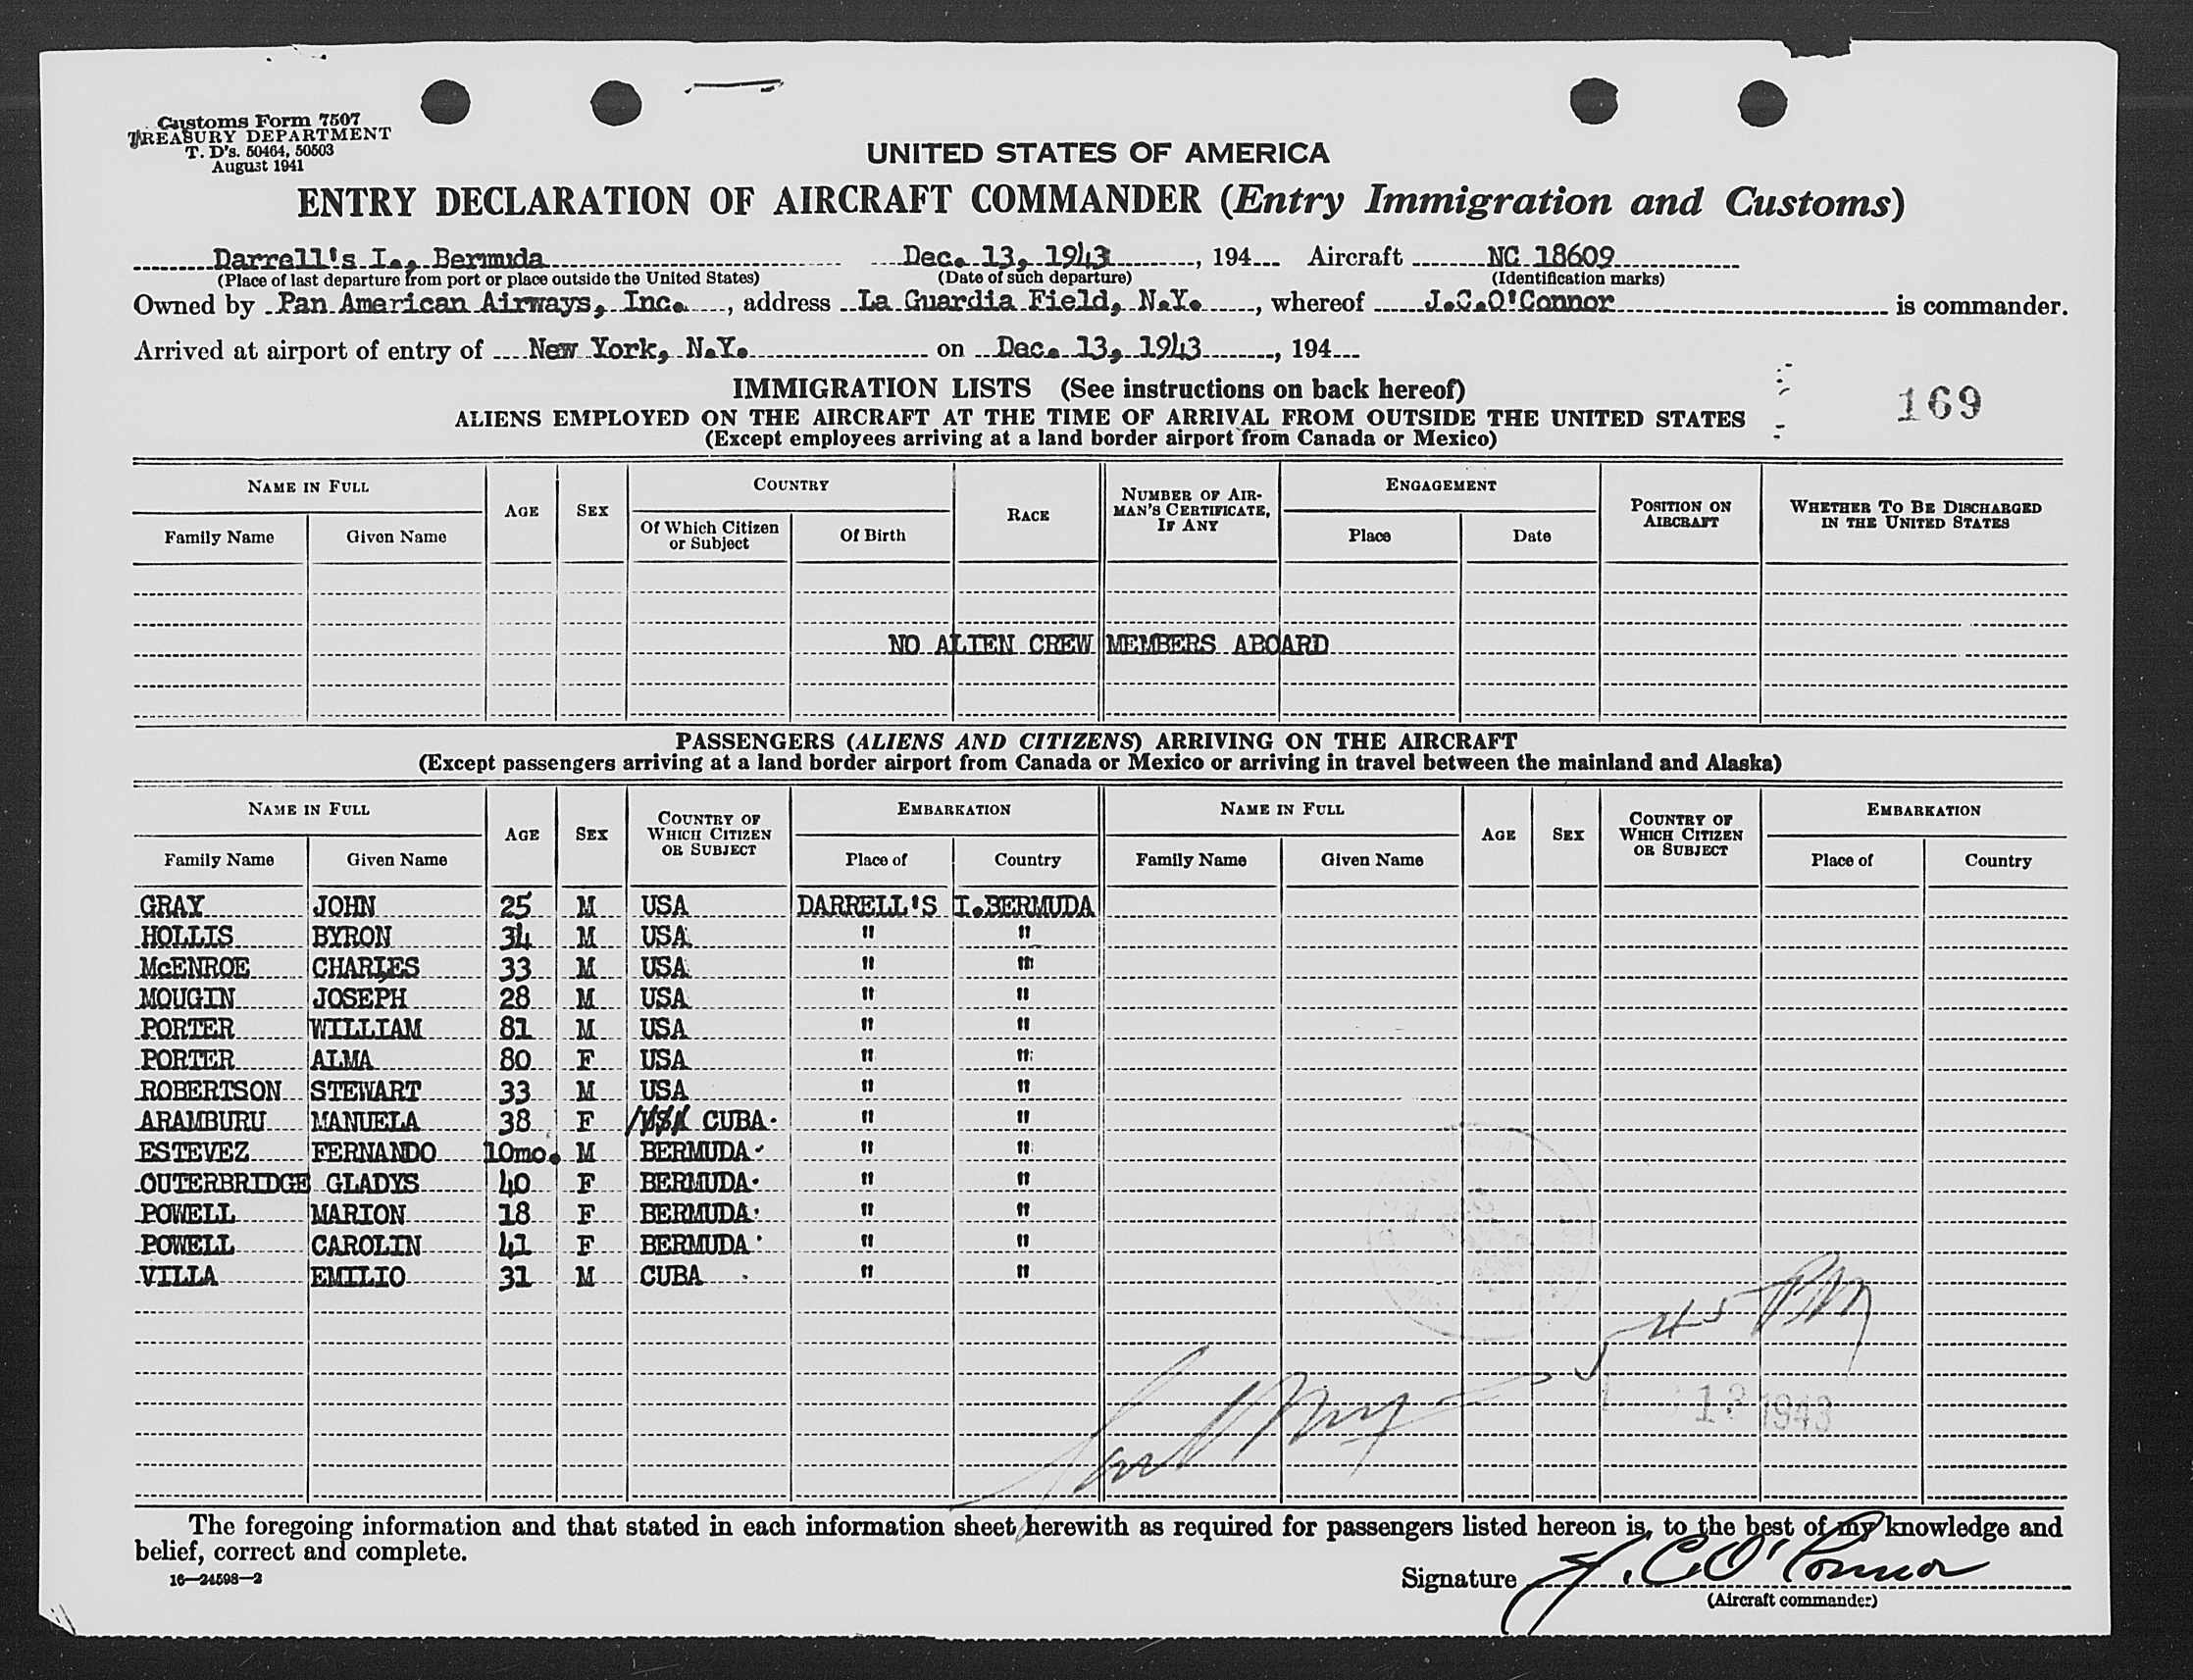 Customs Form 7507
TREASURY DEPARTMENT
T. D's. 50464, 50503
August 1941
UNITED STATES OF AMERICA
ENTRY DECLARATION OF AIRCRAFT COMMANDER (Entry Immigration and Customs)
Darrell's I., Bermuda Dec. 13, 1943, 194 Aircraft NC 18609
(Place of last departure from port or place outside the United States) (Date of such departure) (Identification marks)
Owned by Pan American Airways, Inc., address La Guardia Field, N.Y., whereof J.C.O'Connor is commander.
Arrived at airport of entry of New York, N.Y. on Dec. 13, 1943, 194
IMMIGRATION LISTS (See instructions on back hereof)
169
ALIENS EMPLOYED ON THE AIRCRAFT AT THE TIME OF ARRIVAL FROM OUTSIDE THE UNITED STATES
(Except employees arriving at a land border airport from Canada or Mexico)
NAME IN FULL AGE SEX COUNTRY RACE NUMBER OF AIRMAN'S CERTIFICATE, IF ANY ENGAGEMENT POSITION ON AIRCRAFT WHETHER TO BE DISCHARGED IN THE UNITED STATES
Family Name Given Name Of Which Citizen or Subject Of Birth Place Date
NO ALIEN CREW MEMBERS ABOARD
PASSENGERS (ALIENS AND CITIZENS) ARRIVING ON THE AIRCRAFT
(Except passengers arriving at a land border airport from Canada or Mexico or arriving in travel between the mainland and Alaska)
NAME IN FULL AGE SEX COUNTRY OF WHICH CITIZEN OR SUBJECT EMBARKATION NAME IN FULL AGE SEX COUNTRY OF WHICH CITIZEN OR SUBJECT EMBARKATION
Family Name Given Name Place of Country Family Name Given Name Place of Country
GRAY JOHN 25 M USA DARRELL'S I.BERMUDA
HOLLIS BYRON 34 M USA " "
McENROE CHARLES 33 M USA " "
MOUGIN JOSEPH 28 M USA " "
PORTER WILLIAM 81 M USA " "
PORTER ALMA 80 F USA " "
ROBERTSON STEWART 33 M USA " "
ARAMBURU MANUELA 38 F USA CUBA " "
ESTEVEZ FERNANDO 10mo. M BERMUDA " "
OUTERBRIDGE GLADYS 40 F BERMUDA " "
POWELL MARION 18 F BERMUDA " "
POWELL CAROLIN 41 F BERMUDA " "
VILLA EMILIO 31 M CUBA " "
5 45 PM
13 1943
The foregoing information and that stated in each information sheet herewith as required for passengers listed hereon is, to the best of my knowledge and
belief, correct and complete.
16—24598—2
Signature J. C. O'Connor
(Aircraft commander)